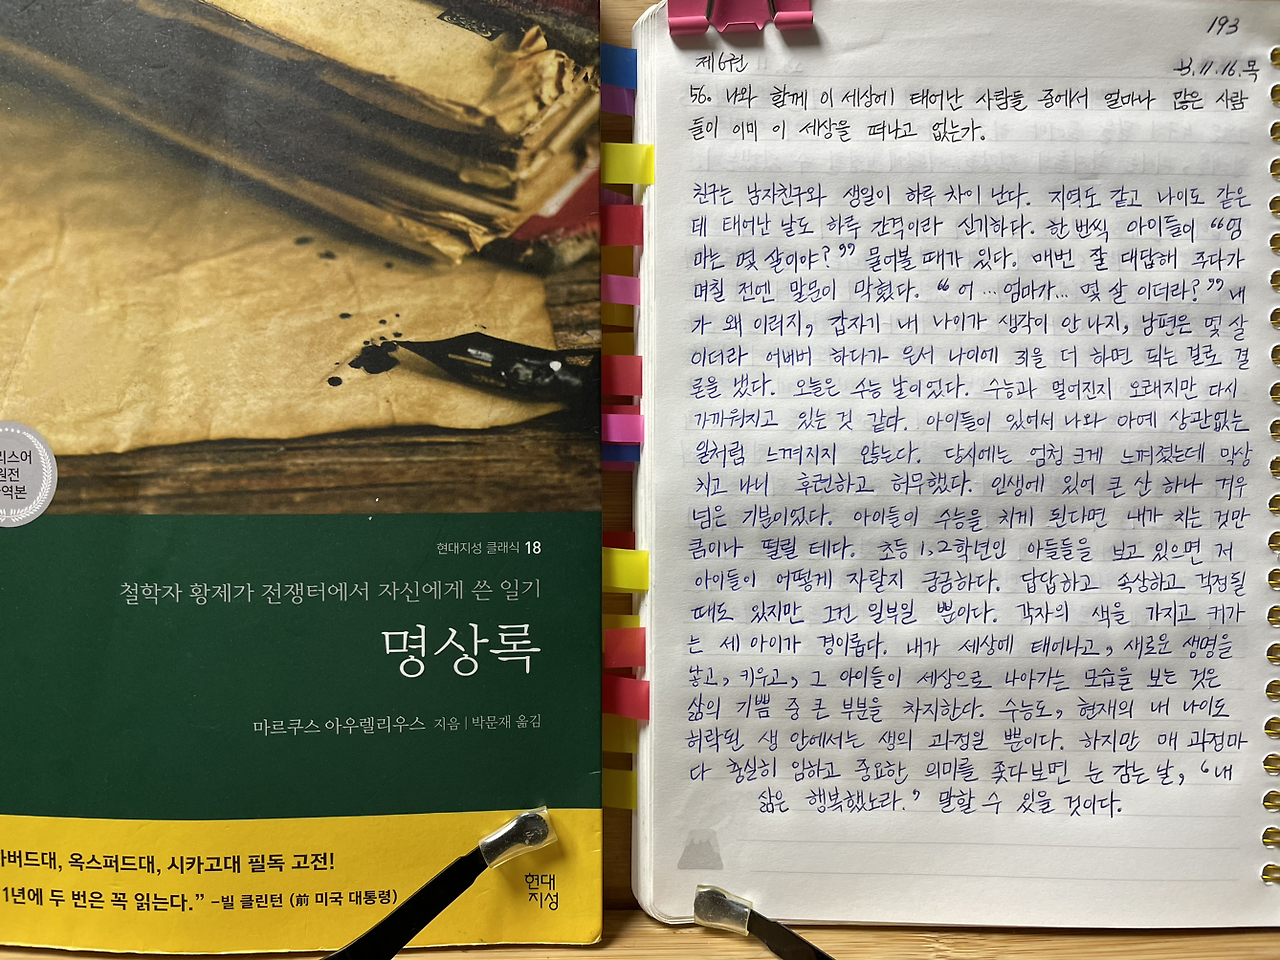 리스어
원전
역본
현대지성 클래식 18
철학자 황제가 전쟁터에서 자신에게 쓴 일기
명상록
마르쿠스 아우렐리우스 지음 | 박문재 옮김
하버드대, 옥스퍼드대, 시카고대 필독 고전!
1년에 두 번은 꼭 읽는다.” –빌 클린턴 (前 미국 대통령)
현대
지성
193
제6권
11.16.목
56. 나와 함께 이 세상에 태어난 사람들 중에서 얼마나 많은 사람
들이 이미 이 세상을 떠나고 없는가.
친구는 남자친구와 생일이 하루 차이 난다. 지역도 같고 나이도 같은
데 태어난 날도 하루 간격이라 신기하다. 한번씩 아이들이 “엄
마는 몇 살이야?” 물어볼 때가 있다. 매번 잘 대답해 주다가
며칠 전엔 말문이 막혔다. “어... 엄마가... 몇 살 이더라?” 내
가 왜 이러지, 갑자기 내 나이가 생각이 안 나지, 남편은 몇 살
이더라 어버버 하다가 은서 나이에 31을 더 하면 되는 걸로 결
론을 냈다. 오늘은 수능 날이었다. 수능과 멀어진지 오래지만 다시
가까워지고 있는 것 같다. 아이들이 있어서 나와 아예 상관없는
일처럼 느껴지지 않는다. 당시에는 엄청 크게 느껴졌는데 막상
치고 나니 후련하고 허무했다. 인생에 있어 큰 산 하나 겨우
넘은 기분이었다. 아이들이 수능을 치게 된다면 내가 치는 것만
큼이나 떨릴 테다. 초등 1,2학년인 아들들을 보고 있으면 저
아이들이 어떻게 자랄지 궁금하다. 답답하고 속상하고 걱정될
때도 있지만 그건 일부일 뿐이다. 각자의 색을 가지고 커가
는 세 아이가 경이롭다. 내가 세상에 태어나고, 새로운 생명을
낳고, 키우고, 그 아이들이 세상으로 나아가는 모습을 보는 것은
삶의 기쁨 중 큰 부분을 차지한다. 수능도, 현재의 내 나이도
허락된 생 안에서는 생의 과정일 뿐이다. 하지만 매 과정마
다 충실히 임하고 중요한 의미를 좇다보면 눈 감는 날, ‘내
삶은 행복했노라.’ 말할 수 있을 것이다.